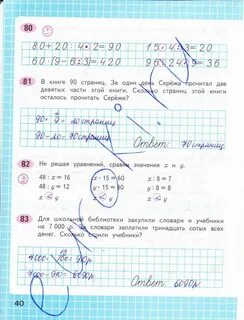 80
80+20:4·2=90
15·4:3=20
60·(9-6):3=60
96:24·9=36
81
В книге 90 страниц. За один день Серёжа прочитал две
девятых части этой книги. Сколько страниц этой книги
осталось прочитать Серёже?
90-20=70страниц
Ответ: 70 страниц
82
Не решая уравнений, сравни значения x и y.
48 : x = 16
x · 15 = 60
x : 8 = 8
48 : y = 12
y · 15 = 90
y : 8 = 7
83
Для школьной библиотеки закупили словари и учебники
на 7 000 р. За словари заплатили тринадцать сотых всех
денег. Сколько стоили учебники?
Ответ:
40